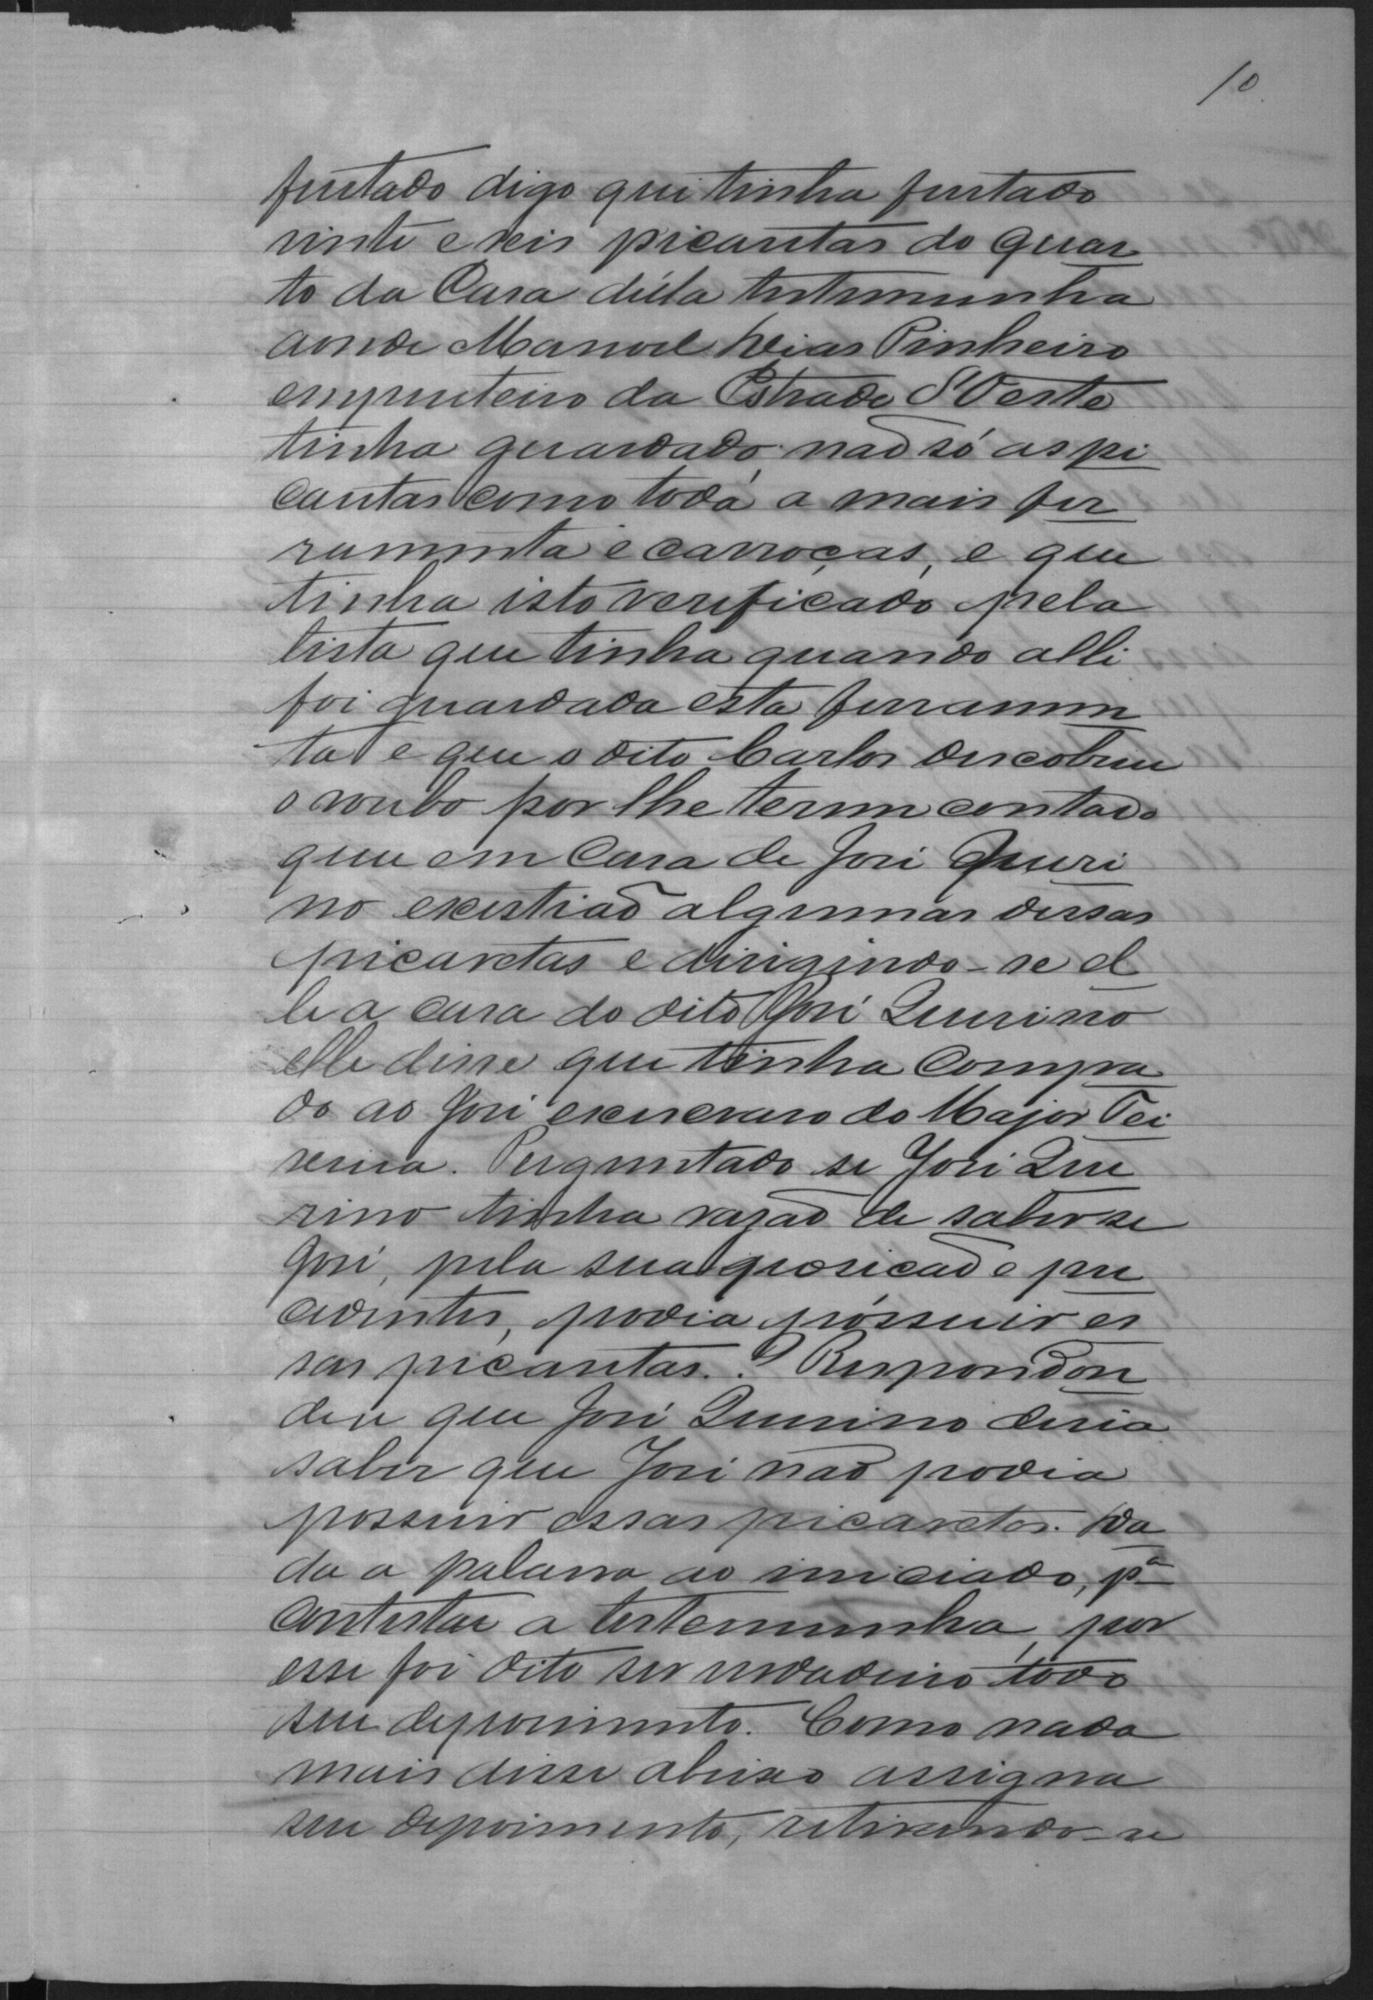 10
furtado digo que tinha furtado
vinte e seis picaretas do quar
to da Casa d'ésta testemunha
aonde Manoel Dias Pinheiro
empreiteiro da Estrada d'Oeste
tinha guardado não só as pi
caretas como toda a mais fer
ramenta e carroças, e que
tinha isto verificado pela
lista que tinha quando alli
foi guardada esta ferramen
ta e que o dito Carlos descobriu
o roubo por lhe terem contado
que em Casa de José Queri
no existiaõ algumas dessas
picaretas e dirigindo-se el
le a casa do dito José Querino
elle disse que tinha compra
do ao José exescravo do Major Tei
xeira. Perguntado se José Que
rino tinha rasaõ de saber se
José, pela sua posicaõ e pre
cedentes, podia possuir es
sas picaretas.? Respondon
deu que José Querino devia
saber que José naõ podia
possuir essas picaretas. Da
da a palavra ao iniciado, pª
contestar a testemunha, por
esse foi dito ser verdadeiro todo
seu depoimento. Como nada
mais disse abaixo assigna
seu depoimento, retirando-se